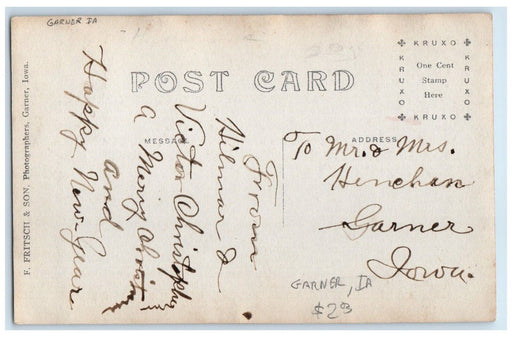 GARNER IA
POST CARD
KRUXO
KRUXO
KRUXO
KRUXO
One Cent
Stamp
Here
MESSAGE
ADDRESS
F. FRITSCH & SON, Photographers, Garner, Iowa.
From
Hilmar &
Victor Christophe
A Merry Christ
and
Happy New Year
To Mr. & Mrs.
Henchan
Garner
Iowa.
GARNER, IA